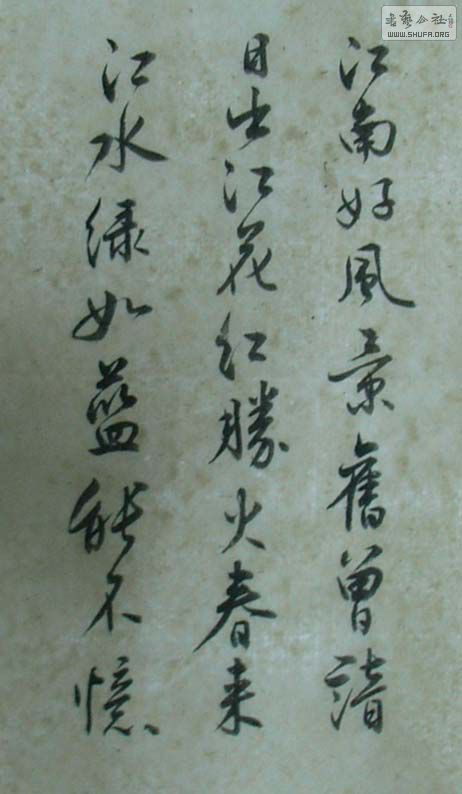 江南好風景舊曾諳
日出江花紅勝火春来
江水緑如藍能不憶
書藝公社
WWW.SHUFA.ORG